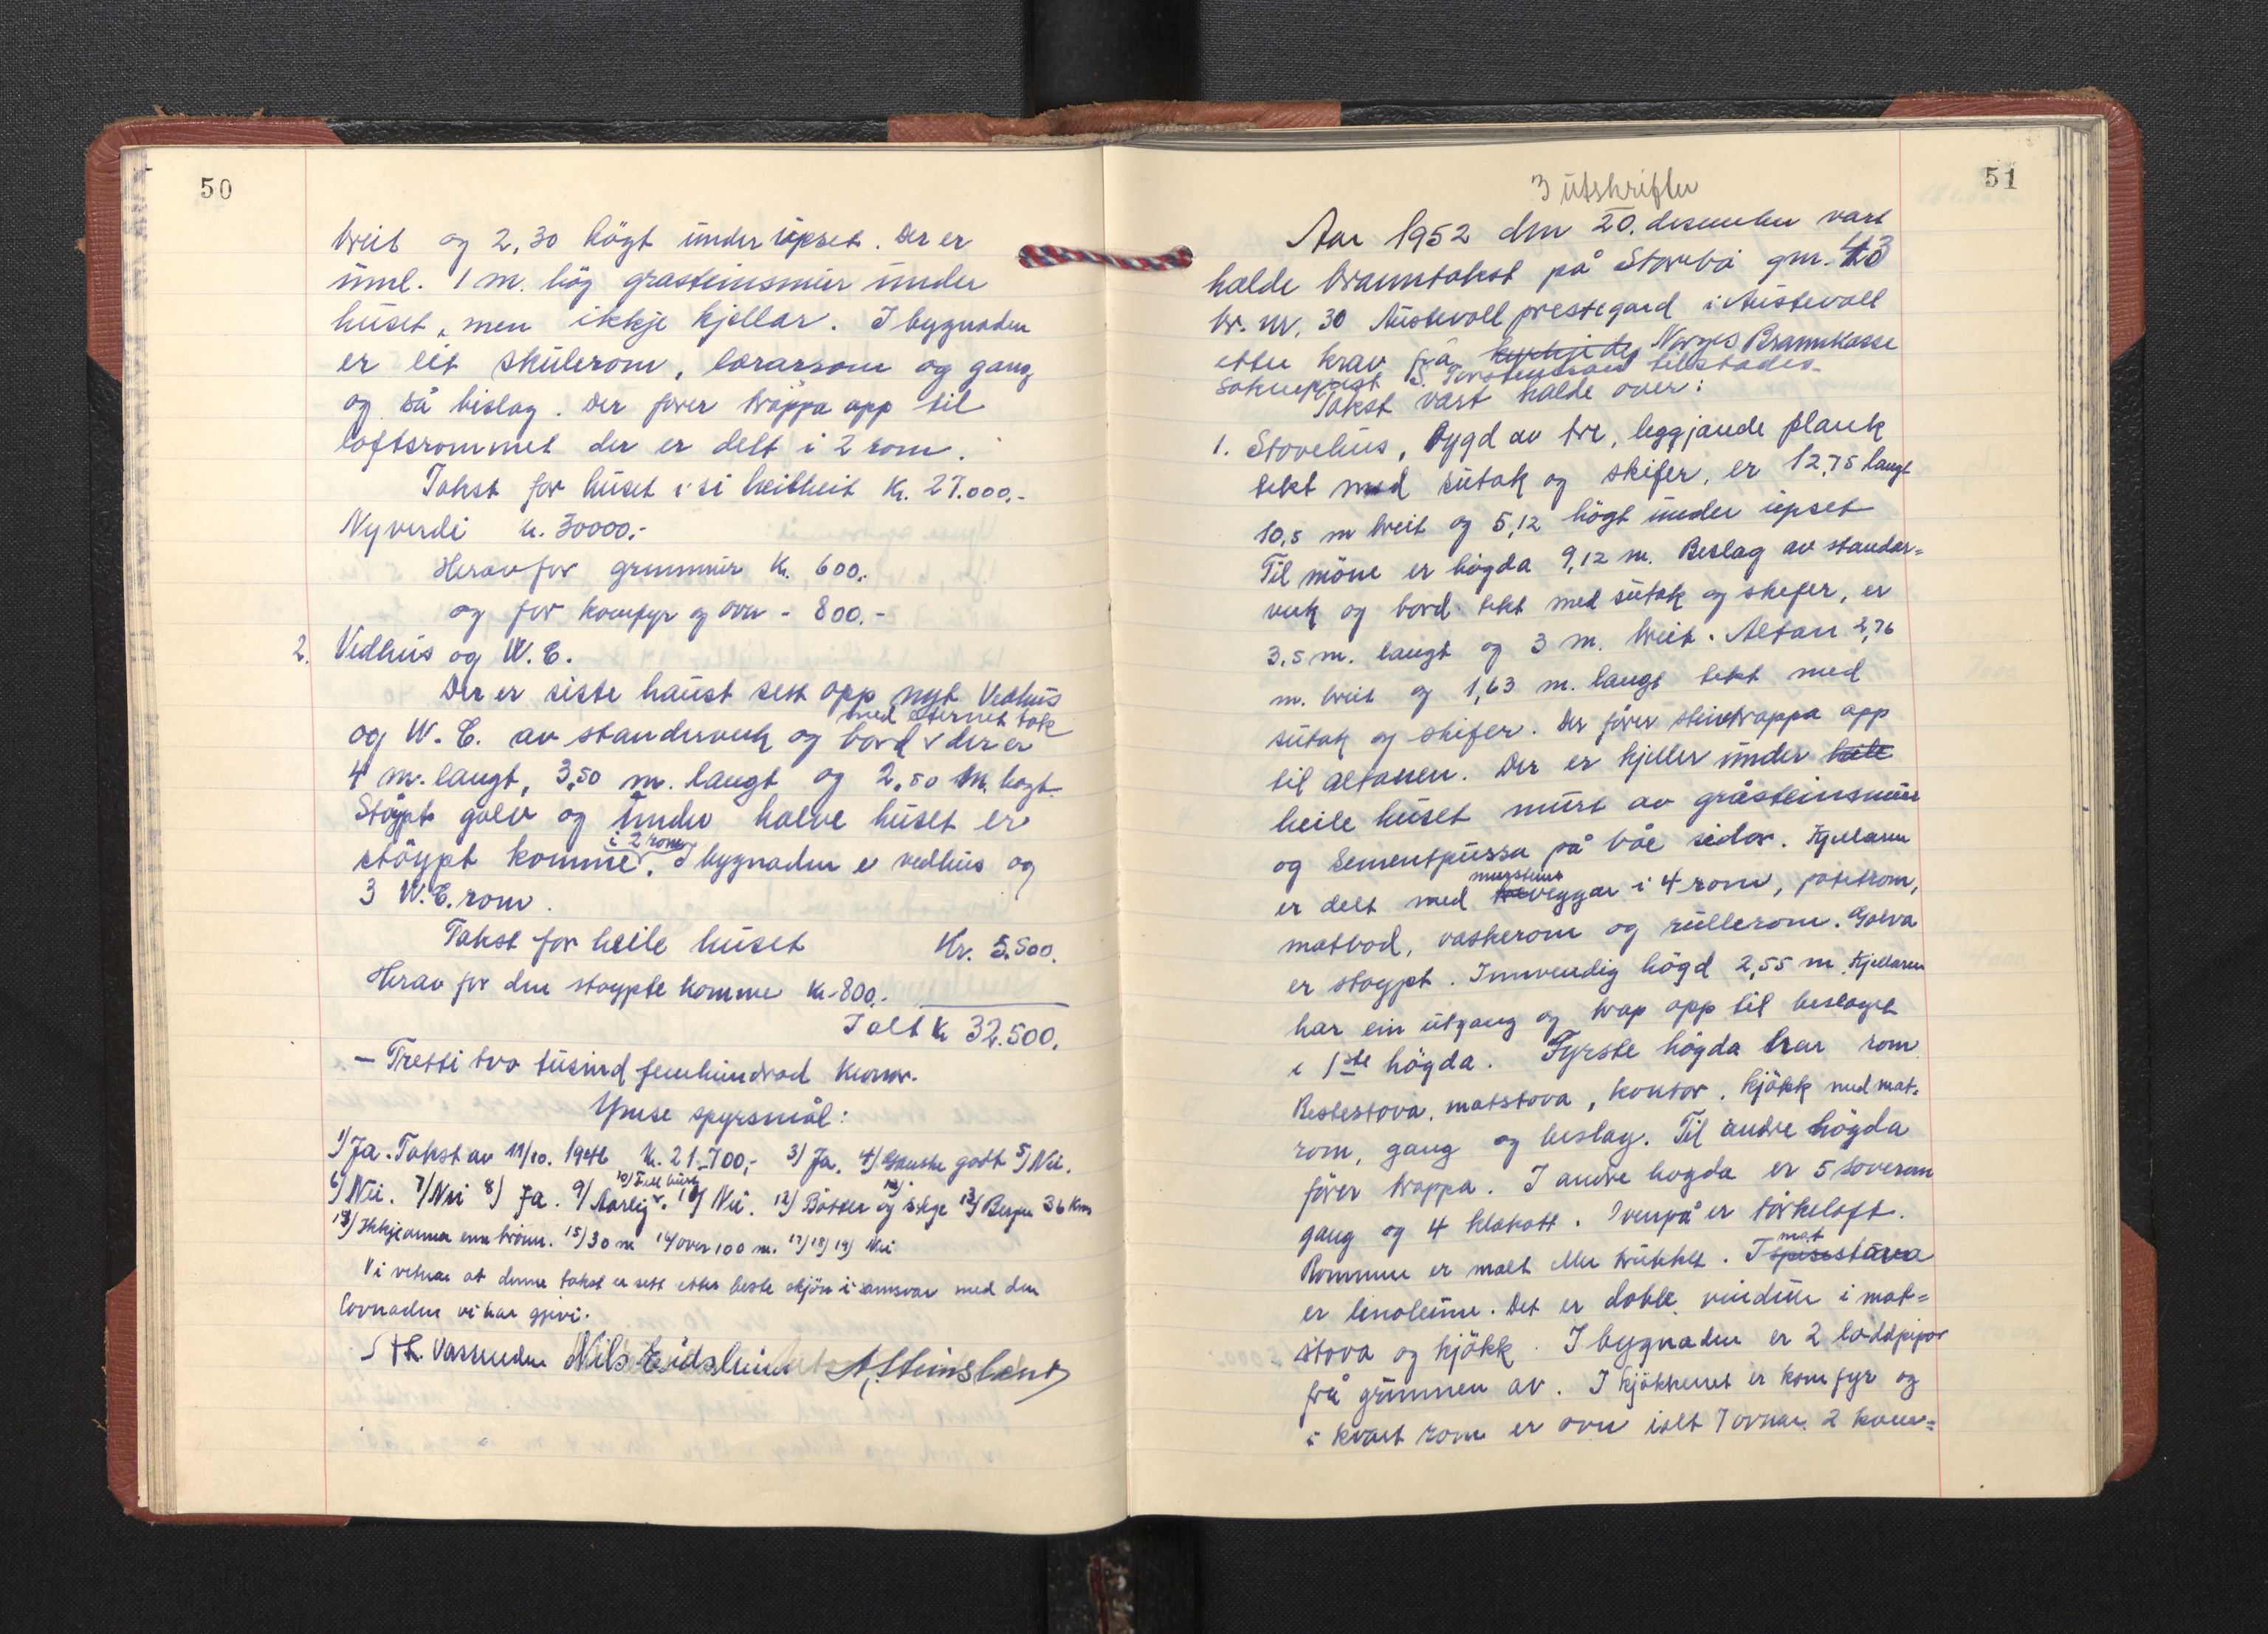 50
breit og 2,30 högt under upset. Der er
uml. 1 m. hög grasteinsmur under
huset, men ikkje kjellar. I bygnaden
er eit skulerom, lærarrom og gang
og så bislag. Der fører trappa opp til
loftsrommet der er delt i 2 rom.
Takst for huset i si heilheit Kr. 27.000.-
Nyverdi kr. 30000.-
Herav for grunnmur Kr. 600.-
og for komfyr og ovn - 800.-
2. Vedhus og W.C.
Der er siste haust sett opp nyt Vedhus
med eternet tak
og W.C. av standerverk og bord v der er
4 m. langt, 3,50 m. langt og 2,50 m. høgt.
Støypt golv og under halve huset er
i 2 rom
støypt komme. I bygnaden er vedhus og
3 W.C. rom.
Takst for heile huset Kr. 5.500.
Herav for den støypte komme Kr 800.-
I alt Kr 32.500.
— Tretti two tusind femhundrad kronor.
Ymse spyrsmål:
1) Ja. Takst av 11/10. 1946 Kr. 21.700,- 3) Ja. 4) Ganske godt 5) Nei.
10) Fell bust
6) Nei. 7) Nei 8) Ja. 9) Aarleg. 11) Nei. 12) Bøtter og stige 13) Bergen 36 Km
13) Ikkje anna enn brönn. 15) 30 m 16) over 100 m. 17) 18) 19) Nei
Vi vitnar at denne takst er sett etter beste skjön i samsvar med den
lovnaden vi har gjevi.
H. Vassenden Nils Eidsheim A. Steinsland
51
3 utskrifter
Aar 1952 den 20. desember vart
halde branntakst på Storebö gnr. 43
br. nr. 30 Austevoll prestegard i Austevoll
etter krav frå kyrkje dep Norges Brannkasse
Sokneprest S. Torstensson tilstades.
Takst vart halde over:
1. Stovehus, bygd av tre, leggjande plank
tekt med sutak og skifer, er 12,75 langt
10,5 m breit og 5,12 högt under upset
Til möne er högda 9,12 m. Beslag av standar=
verk og bord tekt med sutak og skifer, er
3,5 m. langt og 3 m. breit. Altan 2,76
m. breit og 1,63 m. langt tekt med
sutak og skifer. Der förer steintrappa opp
til altanen. Der er kjeller under heile
heile huset murt av gråsteinsmur
og sementpussa på båe sidor. Kjellaren
murstens
er delt med treveggar i 4 rom, potetrom,
matbod, vaskerom og rullerom. Golva
er støypt. Innvendig högd 2,55 m. Kjellaren
har ein utgang og trap opp til beslaget
i 1ste högda. Fyrste högda har rom
Bestestova, matstova, kontor, kjökk med mat=
rom, gang og beslag. Til andre högda
förer trappa. I andre hogda er 5 soverom
gang og 4 klekott. Ovenpå er törkeloft.
mat
Rommene er malt eller trukket. I spisestova
er linoleum. Det er doble vindur i mat=
stova og kjökk. I bygnaden er 2 loddpipor
frå grunnen av. I kjökkenet er komfyr og
i kvart rom er ovn ialt 7 ovnar 2 kom=